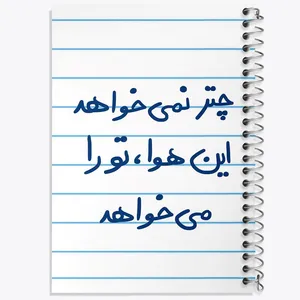 چتر نمی خواهد
این هوا، تو را
می خواهد